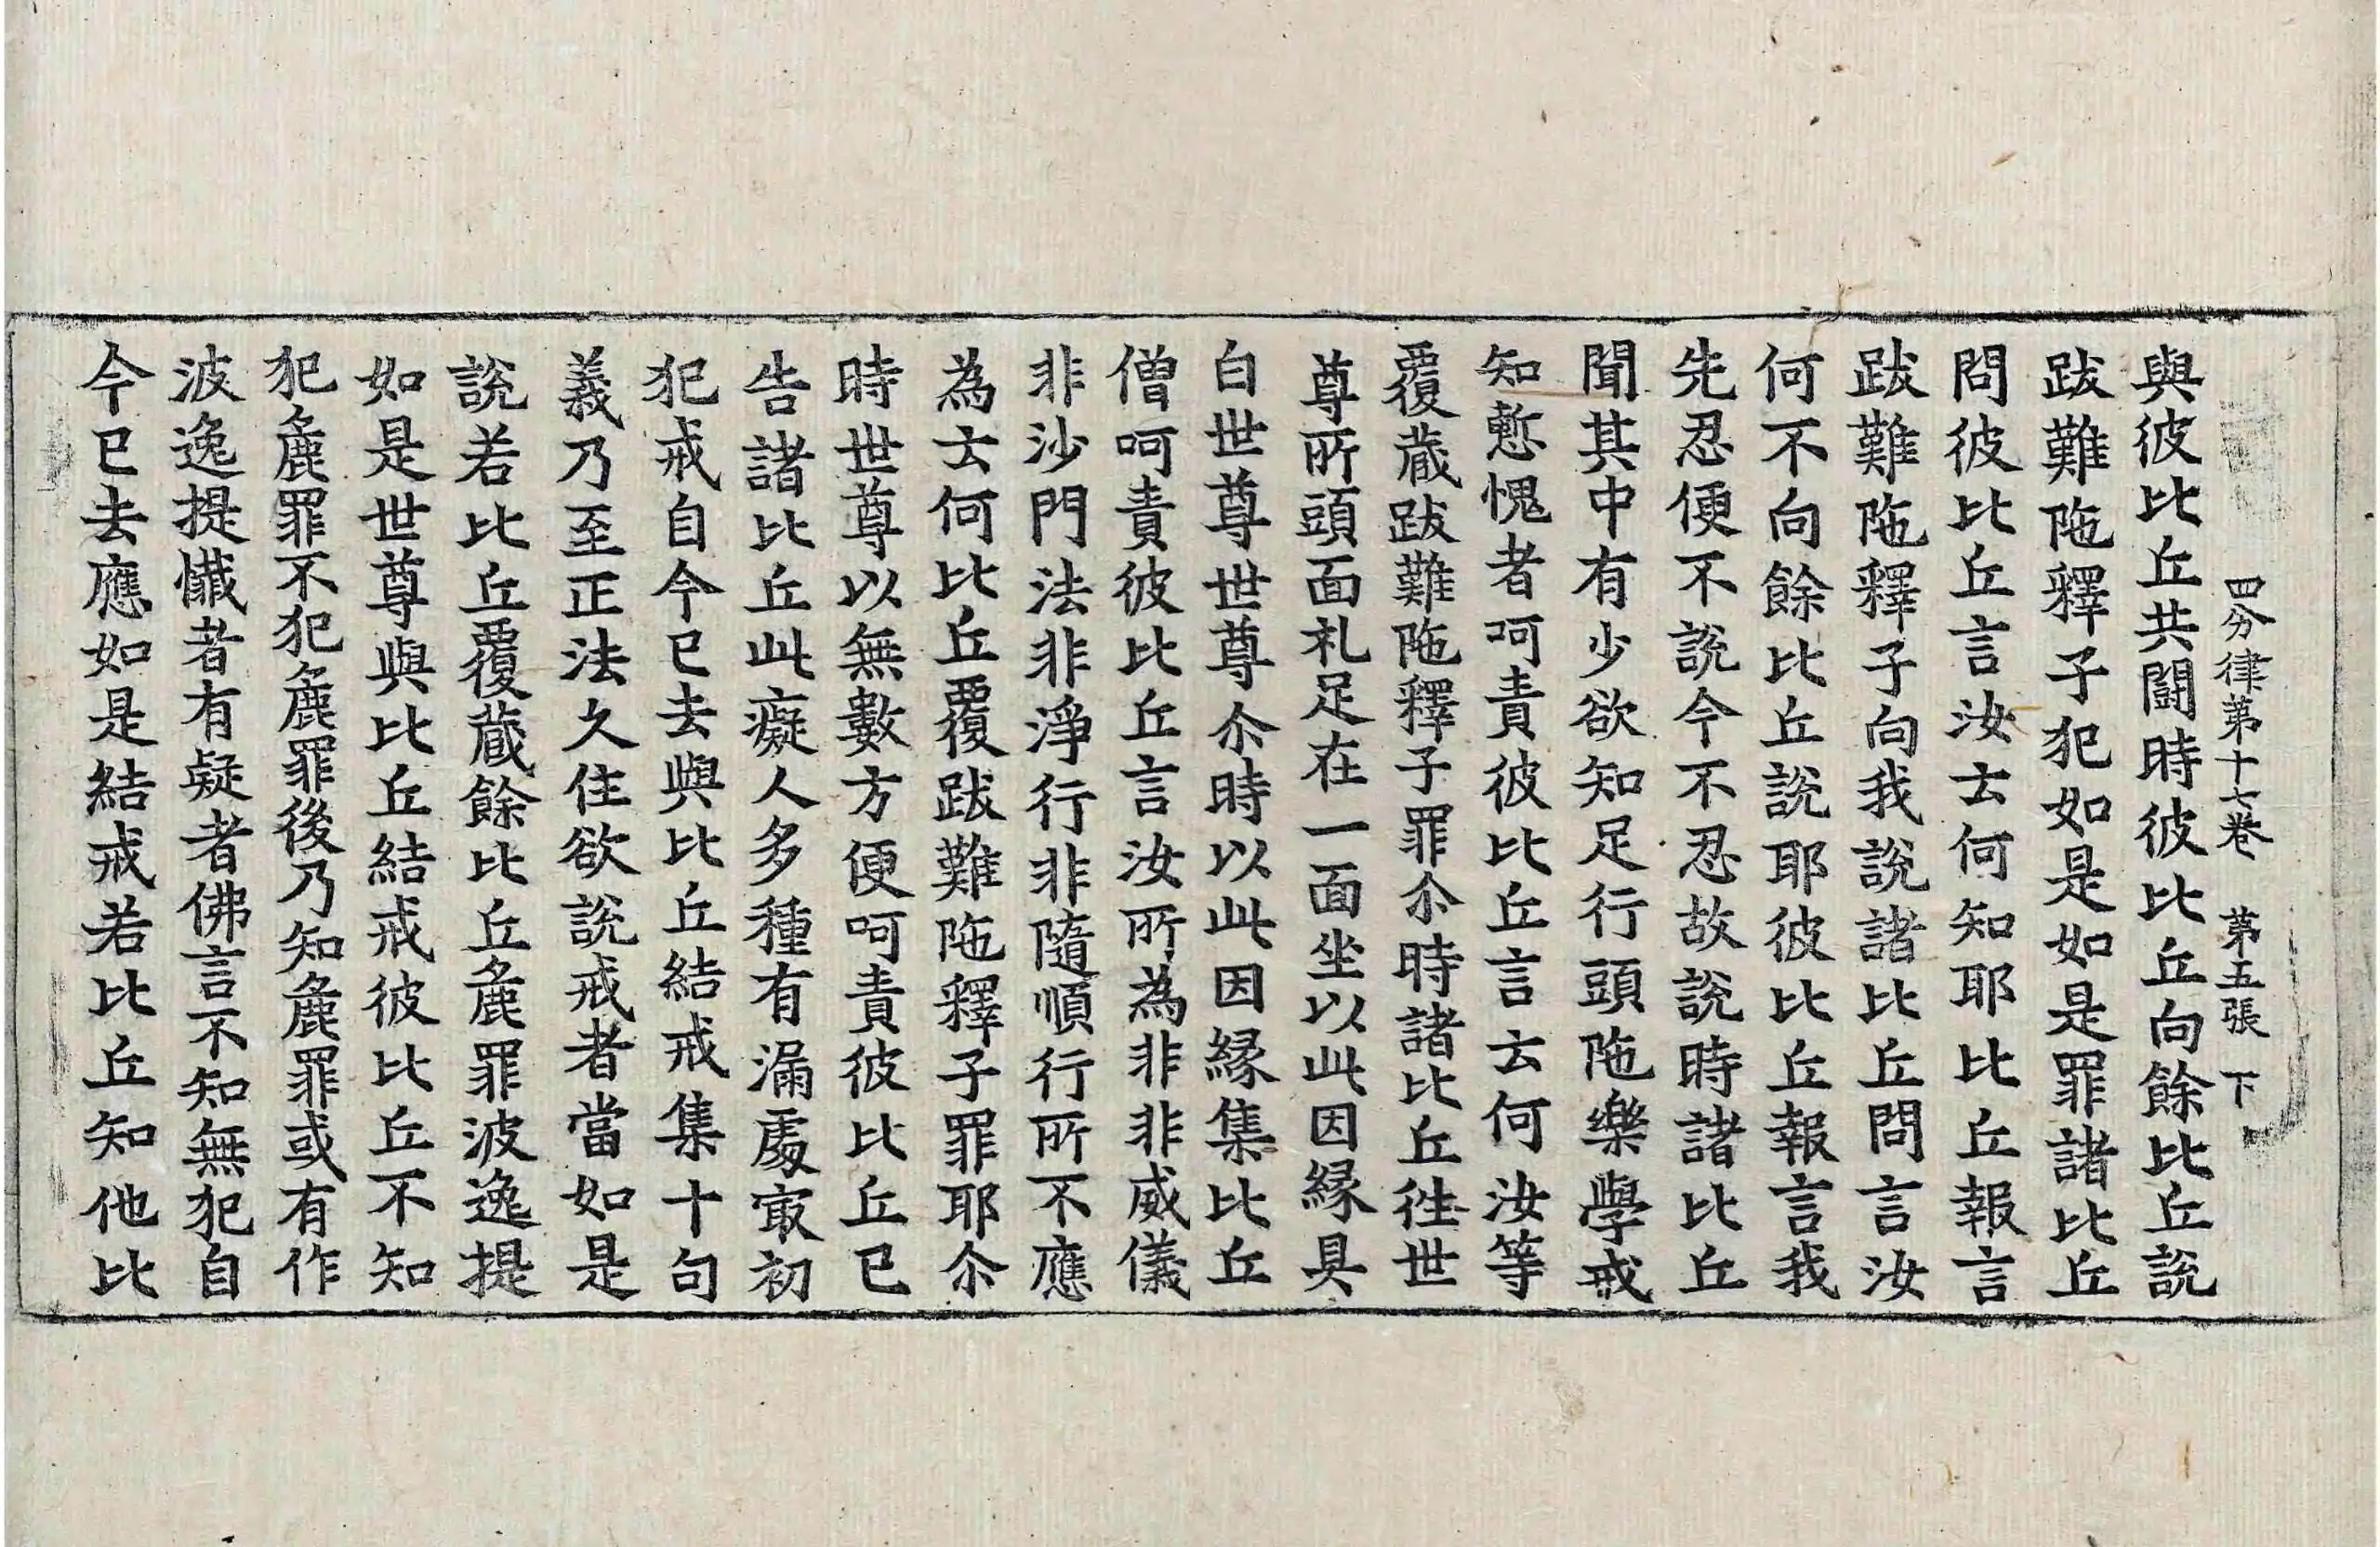 四分律第十七卷 第五張 下
與彼比丘共鬪時彼比丘向餘比丘說
跋難陁釋子犯如是如是罪諸比丘
問彼比丘言汝云何知耶比丘報言
跋難陁釋子向我說諸比丘問言汝
何不向餘比丘說耶彼比丘報言我
先忍便不說今不忍故說時諸比丘
聞其中有少欲知足行頭陁樂學戒
知慙愧者呵責彼比丘言云何汝等
覆蔵跋難陁釋子罪尒時諸比丘徃世
尊所頭面礼足在一面坐以此因縁具
白世尊世尊尒時以此因縁集比丘
僧呵責彼比丘言汝所為非非威儀
非沙門法非淨行非隨順行所不應
為云何比丘覆跋難陁釋子罪耶尒
時世尊以無數方便呵責彼比丘已
告諸比丘此癡人多種有漏處㝡初
犯戒自今已去與比丘結戒集十句
義乃至正法久住欲說戒者當如是
說若比丘覆蔵餘比丘麁罪波逸提
如是世尊與比丘結戒彼比丘不知
犯麁罪不犯麁罪後乃知麁罪或有作
波逸提懺者有疑者佛言不知無犯自
今已去應如是結戒若比丘知他比